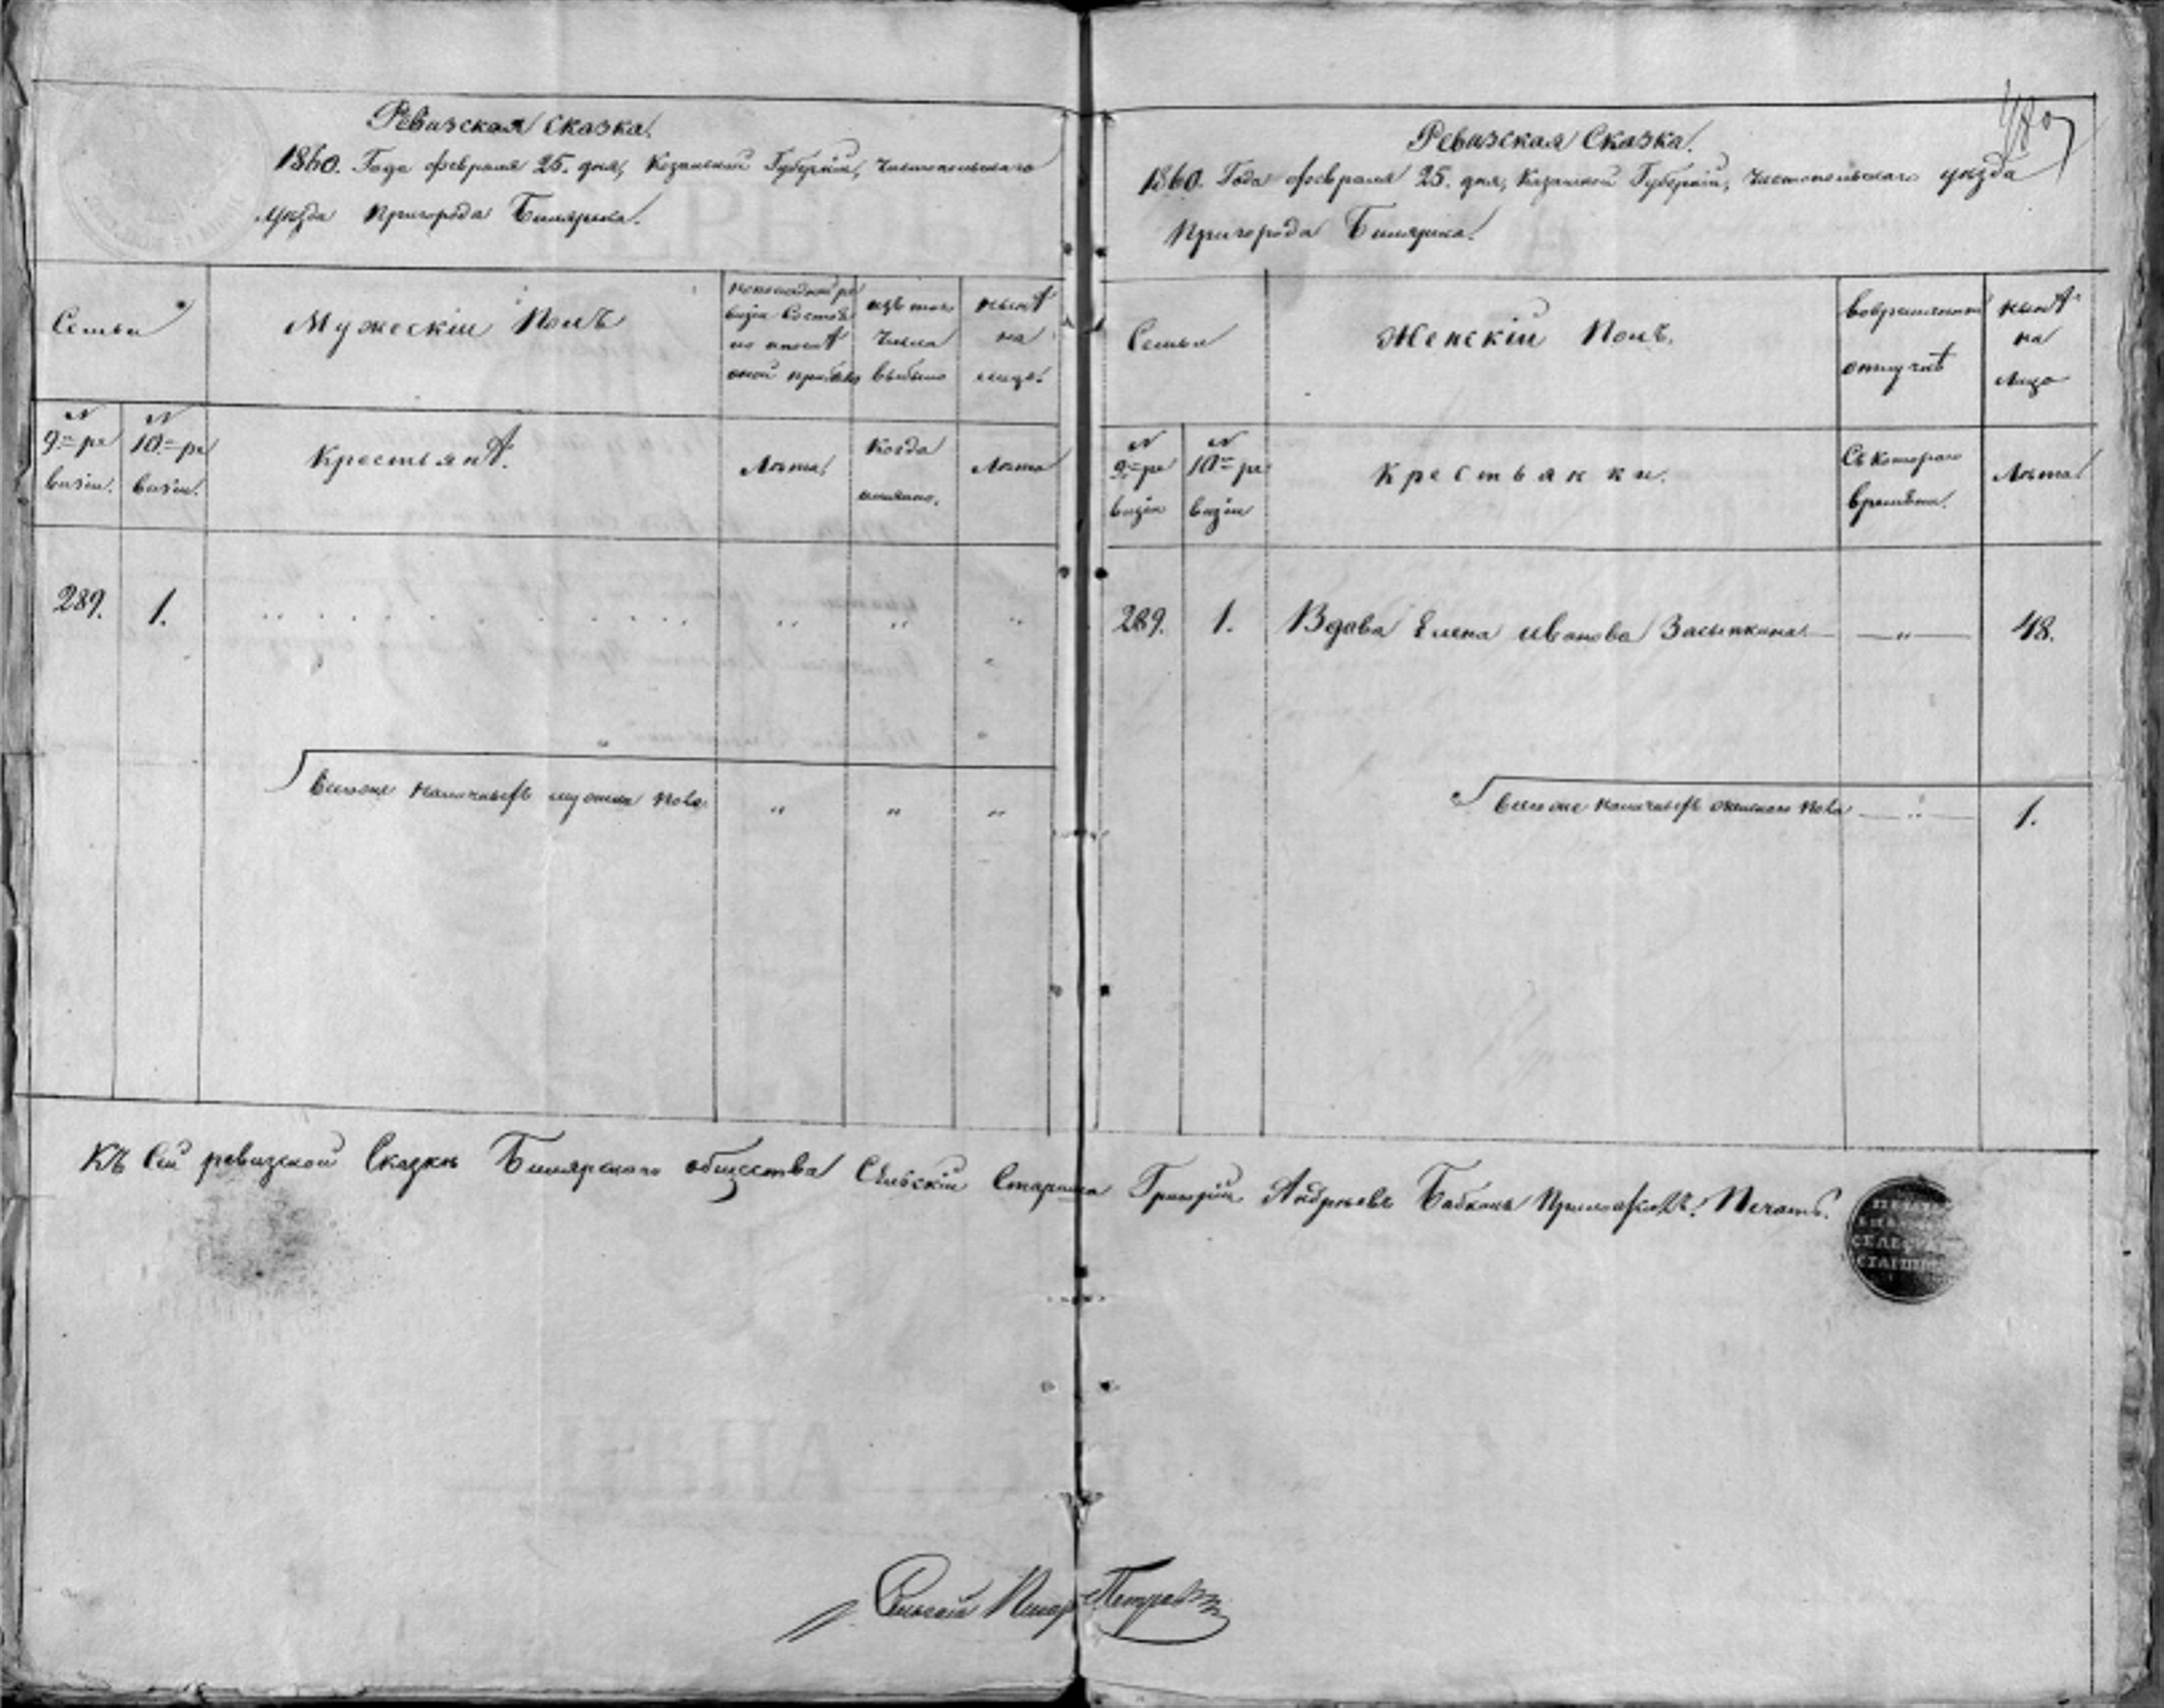 Ревизская Сказка.
1860. Года февраля 25. дня, Казанской Губерніи, Чистопольскаго
уѣзда Пригорода Билярска.
Семьи
Мужескій Полъ
по последней ре
визіи состоя
ло и послѣ
оной прибыло
изъ того
числа
выбыло
нынѣ
на
лицо.
№
9й ре
визіи.
№
10й ре
визіи.
Крестьянѣ.
Лѣта,
Когда
именно.
Лѣта
289.
1.
Всего же наличныхъ мужска пола.
Ревизская Сказка.
1860. Года февраля 25. дня, Казанской Губерніи, Чистопольскаго уѣзда
Пригорода Билярска.
Семьи
Женскій Полъ.
во временной
отлучкѣ
нынѣ
на
лицо
№
9й ре
визіи
№
10й ре
визіи
Крестьянки.
Съ котораго
времени.
Лѣта.
289.
1.
Вдова Елена Иванова Засыпкина
48.
Всего же наличныхъ женскаго пола
1.
Къ сей ревизской Сказкѣ Билярскаго общества Сельскій Старшина Григорій Андрѣевъ Бабкинъ Приложилъ Печать.
ПЕЧАТЬ
СЕЛЬСК
СТАРШИН
Сельскій Писарь Петровъ